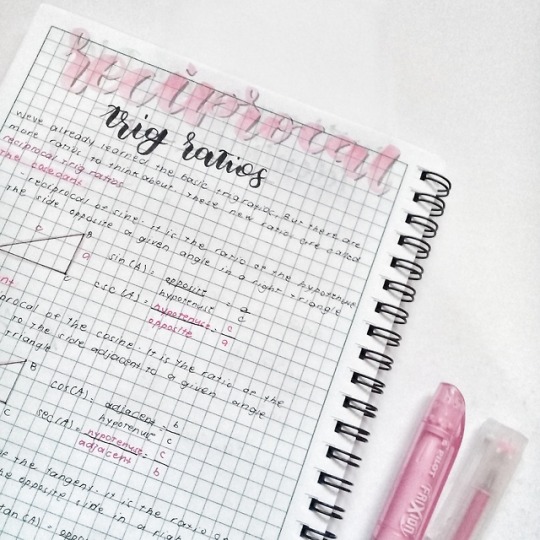 reciprocal
trig ratios
We've already learned the basic trig ratios. But there are
more ratios to think about. These new ratios are called
reciprocal trig ratios
the cosecant
- reciprocal of sine. it is the ratio of the hypotenuse
the side opposite a given angle in a right triangle
c
B
a
C
sin(A) = opposite = a
hypotenuse c
csc(A) = hypotenuse = c
opposite a
procal of the cosine. it is the ratio of the
to the side adjacent to a given angle
triangle
B
C
cos(A) = adjacent = b
hypotenuse c
sec(A) = hypotenuse = c
adjacent b
the tangent. it is the ratio
opposite side in a right
tan(A) =
PILOT FRIXION